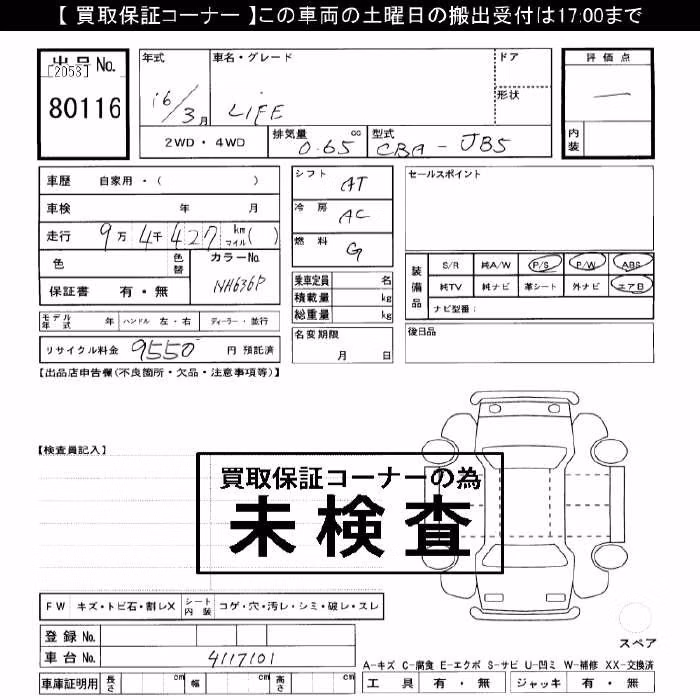 【 買取保証コーナー 】この車両の土曜日の搬出受付は17:00まで
出品No.
[2053]
80116
年式 車名・グレード ドア
形状
16/3月 LIFE
2WD・4WD 排気量 0.65 cc 型式 CBA - JB5
評価点
—
内装
車歴 自家用・( )
車検 年 月
走行 9万4千427 km マイル( )
色 色替 カラーNo. NH636P
保証書 有・無
モデル年式 年 ハンドル 左・右 ディーラー・並行
リサイクル料金 9550 円 預託済
シフト AT
冷房 AC
燃料 G
乗車定員 名
積載量 kg
総重量 kg
名変期限
月 日
セールスポイント
装備品 S/R 純A/W P/S P/W ABS
純TV 純ナビ 革シート 外ナビ エアB
ナビ型番:
後日品
【出品店申告欄(不良箇所・欠品・注意事項等)】
【検査員記入】
買取保証コーナーの為
未検査
FW キズ・トビ石・割レX シート内装 コゲ・穴・汚レ・シミ・破レ・スレ
登録No.
車台No. 4117101
車庫証明用 長さ cm 幅 cm 高さ cm
スペア
A-キズ C-腐食 E-エクボ S-サビ U-凹ミ W-補修 XX-交換済
工具 有・無 ジャッキ 有・無